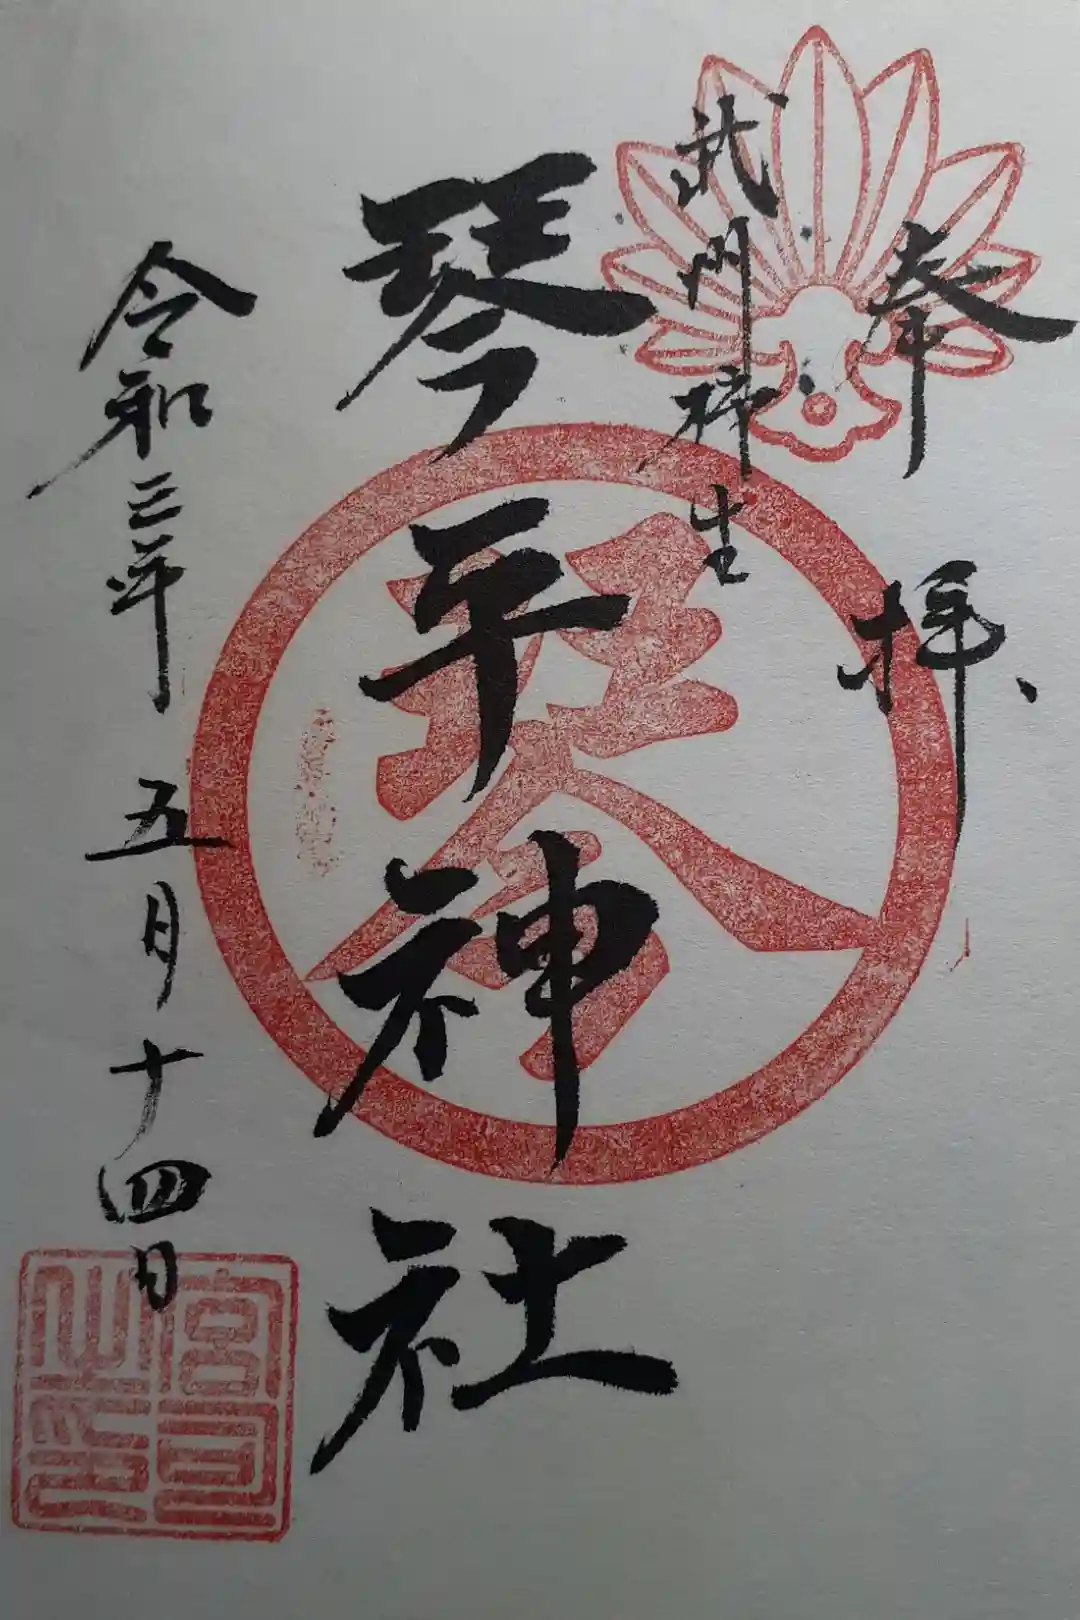 奉拝
武州柿生
琴平神社
琴
令和三年五月十四日
宮司之印